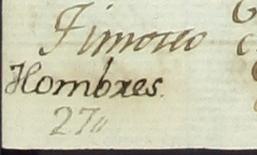 Timoteo
Hombres.
27